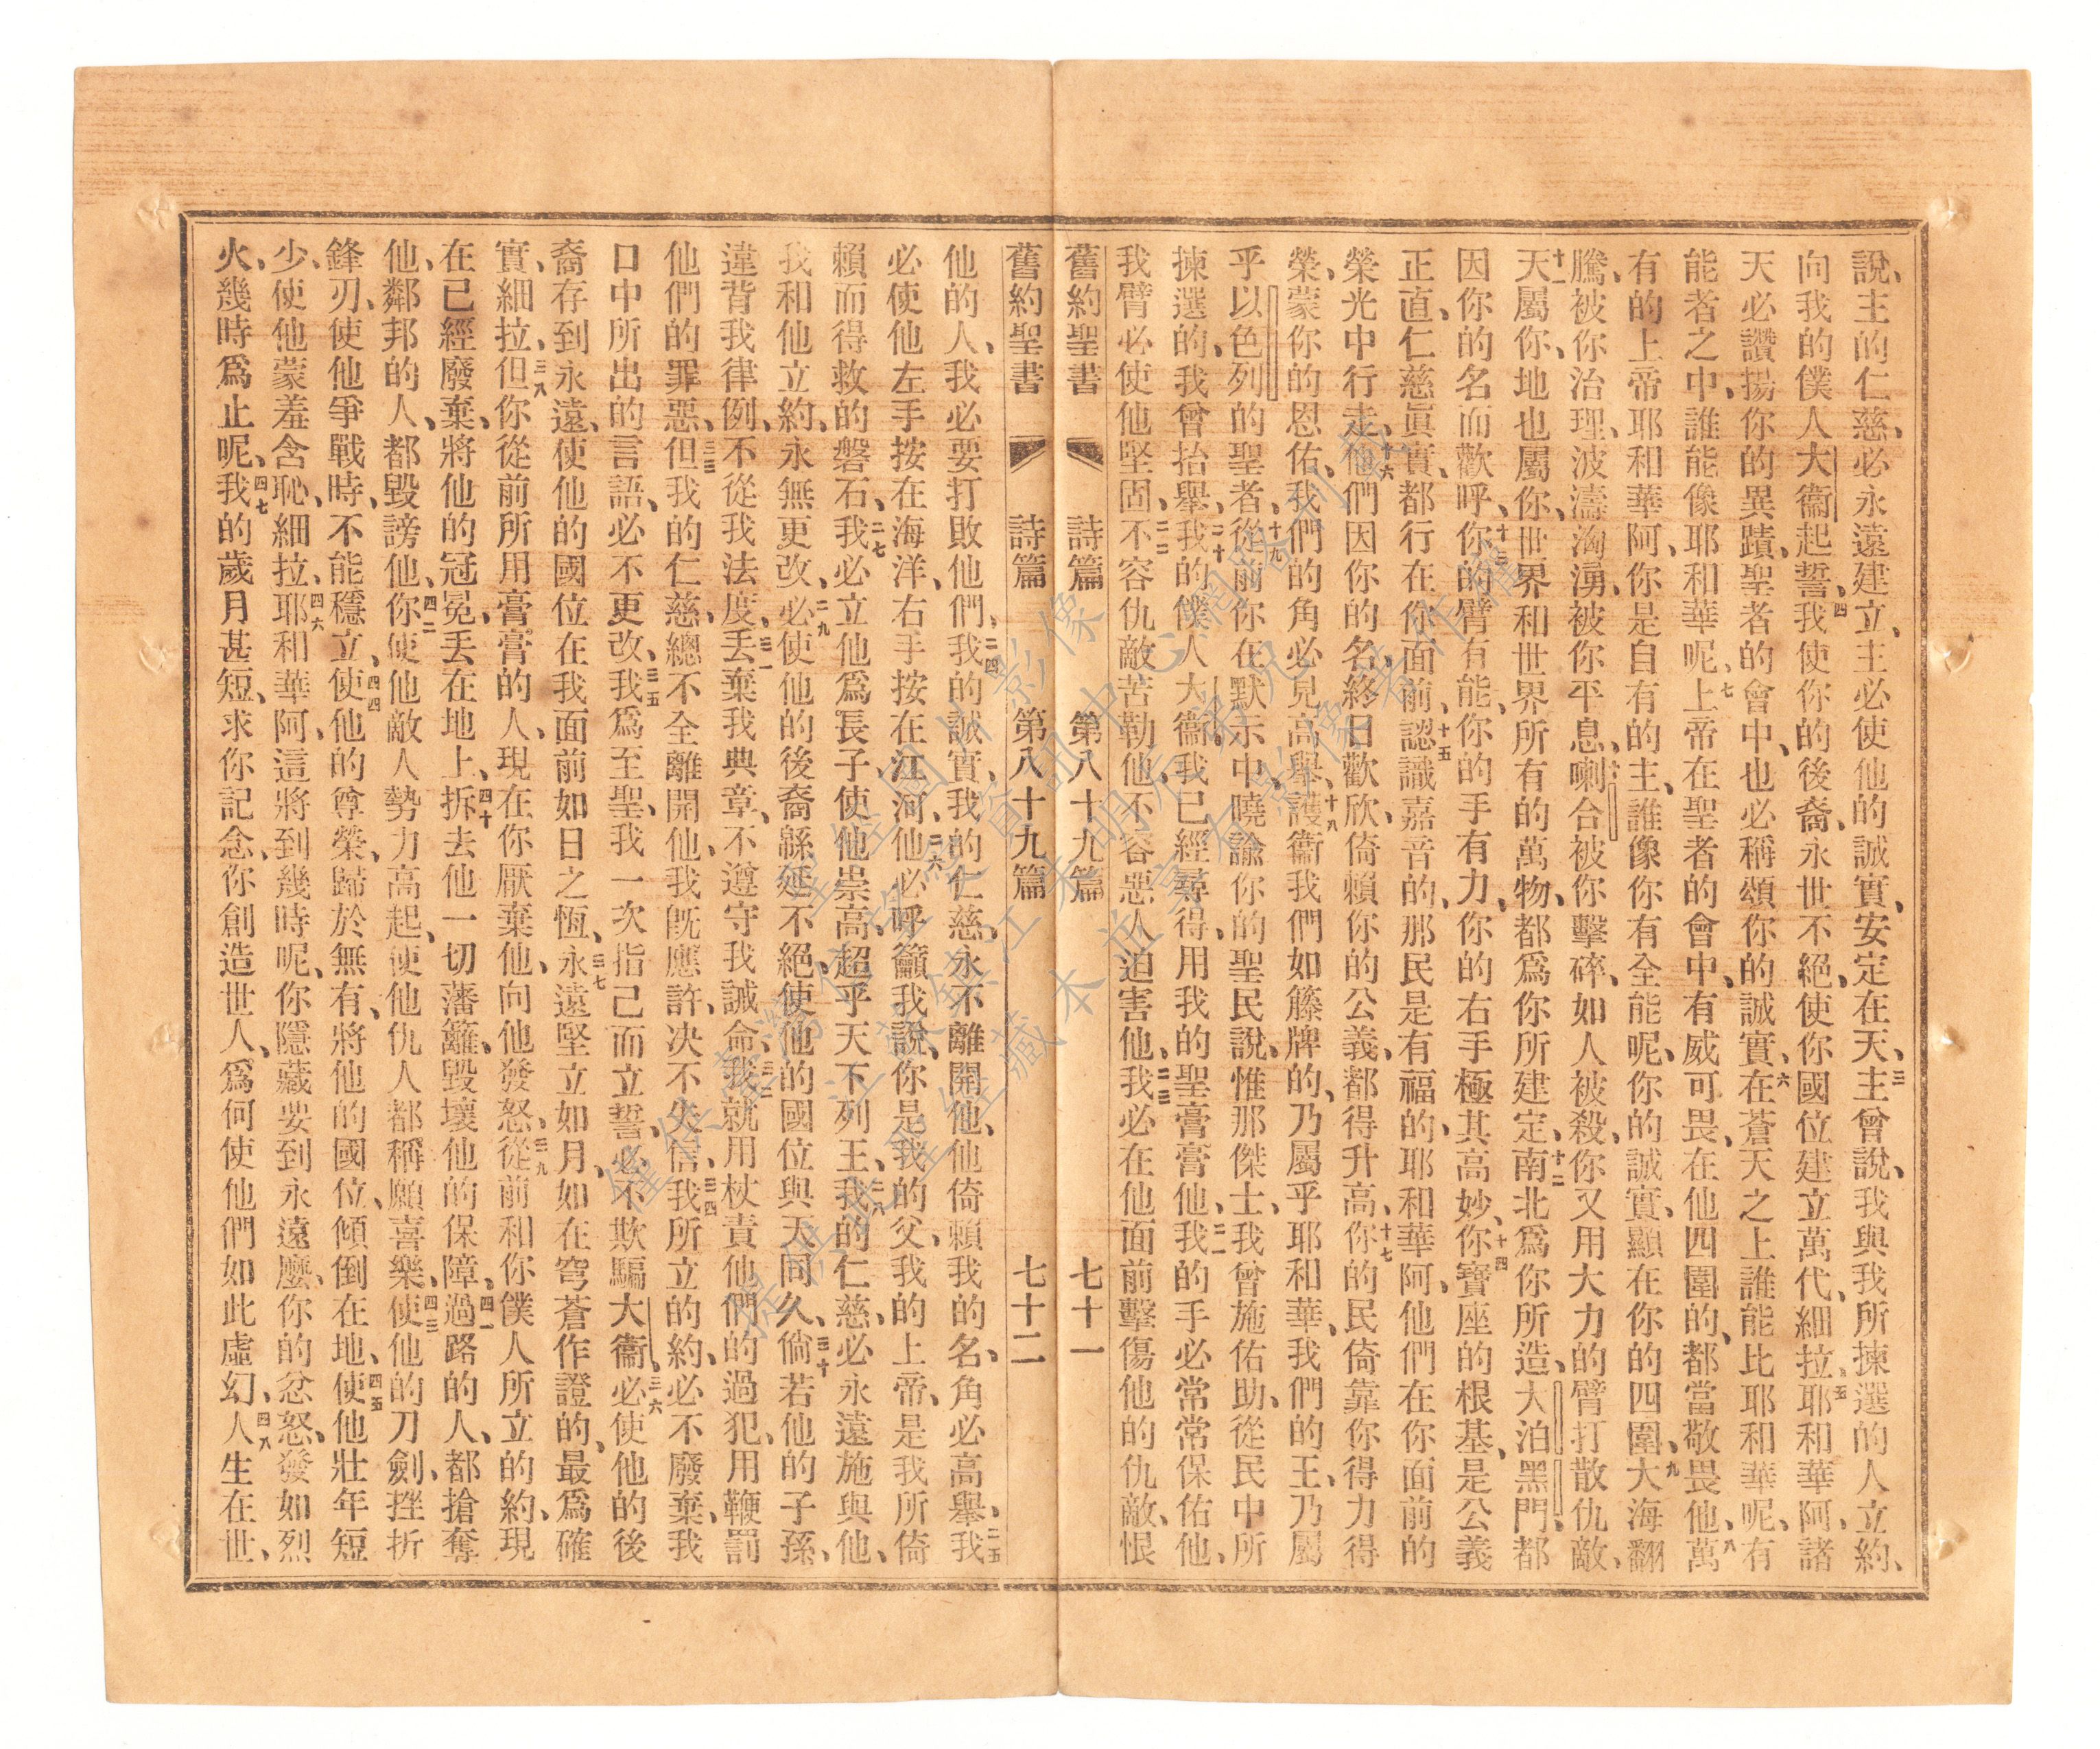 說、主的仁慈、必永遠建立、主必使他的誠實、安定在天、三主曾說、我與我所揀選的人立約、
向我的僕人大衞起誓、四我使你的後裔、永世不絕、使你國位建立萬代、細拉、五耶和華阿、諸
天必讚揚你的異蹟、聖者的會中、也必稱頌你的誠實、六在蒼天之上誰能比耶和華呢、有
能者之中、誰能像耶和華呢、七上帝在聖者的會中、有威可畏、在他四圍的、都當敬畏他、八萬
有的上帝耶和華阿、你是自有的主、誰像你有全能呢、你的誠實、顯在你的四圍、九大海翻
騰、被你治理、波濤洶湧、被你平息、十喇合被你擊碎、如人被殺、你又用大力的臂打散仇敵、
十一天屬你、地也屬你、世界和世界所有的萬物、都爲你所建定、十二南北爲你所造、大泊黑門、都
因你的名而歡呼、十三你的臂有能、你的手有力、你的右手極其高妙、十四你寶座的根基、是公義
正直、仁慈眞實、都行在你面前、十五認識嘉音的、那民是有福的、耶和華阿、他們在你面前的
榮光中行走、十六他們因你的名、終日歡欣、倚賴你的公義、都得升高、十七你的民倚靠你得力得
榮、蒙你的恩佑、我們的角必見高舉、十八護衞我們如籐牌的、乃屬乎耶和華、我們的王、乃屬
乎以色列的聖者、十九從前你在默示中、曉諭你的聖民說、惟那傑士、我曾施佑助、從民中所
揀選的、我曾抬舉、二十我的僕人大衞、我已經尋得、用我的聖膏膏他、二一我的手必常常保佑他、
我臂必使他堅固、二二不容仇敵苦勒他、不容惡人迫害他、二三我必在他面前擊傷他的仇敵、恨
舊約聖書 詩篇 第八十九篇 七十一
舊約聖書 詩篇 第八十九篇 七十二
他的人、我必要打敗他們、二四我的誠實、我的仁慈、永不離開他、他倚賴我的名、角必高舉、二五我
必使他左手按在海洋、右手按在江河、二六他必呼籲我說、你是我的父、我的上帝、是我所倚
賴而得救的磐石、二七我必立他爲長子、使他祟高、超乎天下列王、二八我的仁慈、必永遠施與他、
我和他立約、永無更改、二九必使他的後裔緜延不絕、使他的國位與天同久、三十倘若他的子孫、
違背我律例、不從我法度、三一丢棄我典章、不遵守我誡命、三二我就用杖責他們的過犯、用鞭罰
他們的罪惡、三三但我的仁慈、總不全離開他、我旣應許、決不失信、三四我所立的約、必不廢棄、我
口中所出的言語、必不更改、三五我爲至聖、我一次指己而立誓、必不欺騙大衞、三六必使他的後
裔存到永遠、使他的國位在我面前如日之恆、三七永遠堅立如月、如在穹蒼作證的、最爲確
實、細拉、三八但你從前所用膏膏的人、現在你厭棄他、向他發怒、三九從前和你僕人所立的約、現
在已經廢棄、將他的冠冕、丢在地上、四十拆去他一切藩籬、毀壞他的保障、四一過路的人、都搶奪
他、鄰邦的人、都毀謗他、四二你使他敵人勢力高起、使他仇人都稱願喜樂、四三使他的刀劍、挫折
鋒刃、使他爭戰時、不能穩立、四四使他的尊榮、歸於無有、將他的國位、傾倒在地、四五使他壯年短
少、使他蒙羞含恥、細拉、四六耶和華阿、這將到幾時呢、你隱藏要到永遠麼、你的忿怒、發如烈
火、幾時爲止呢、四七我的歲月甚短、求你記念、你創造世人、爲何使他們如此虛幻、四八人生在世、